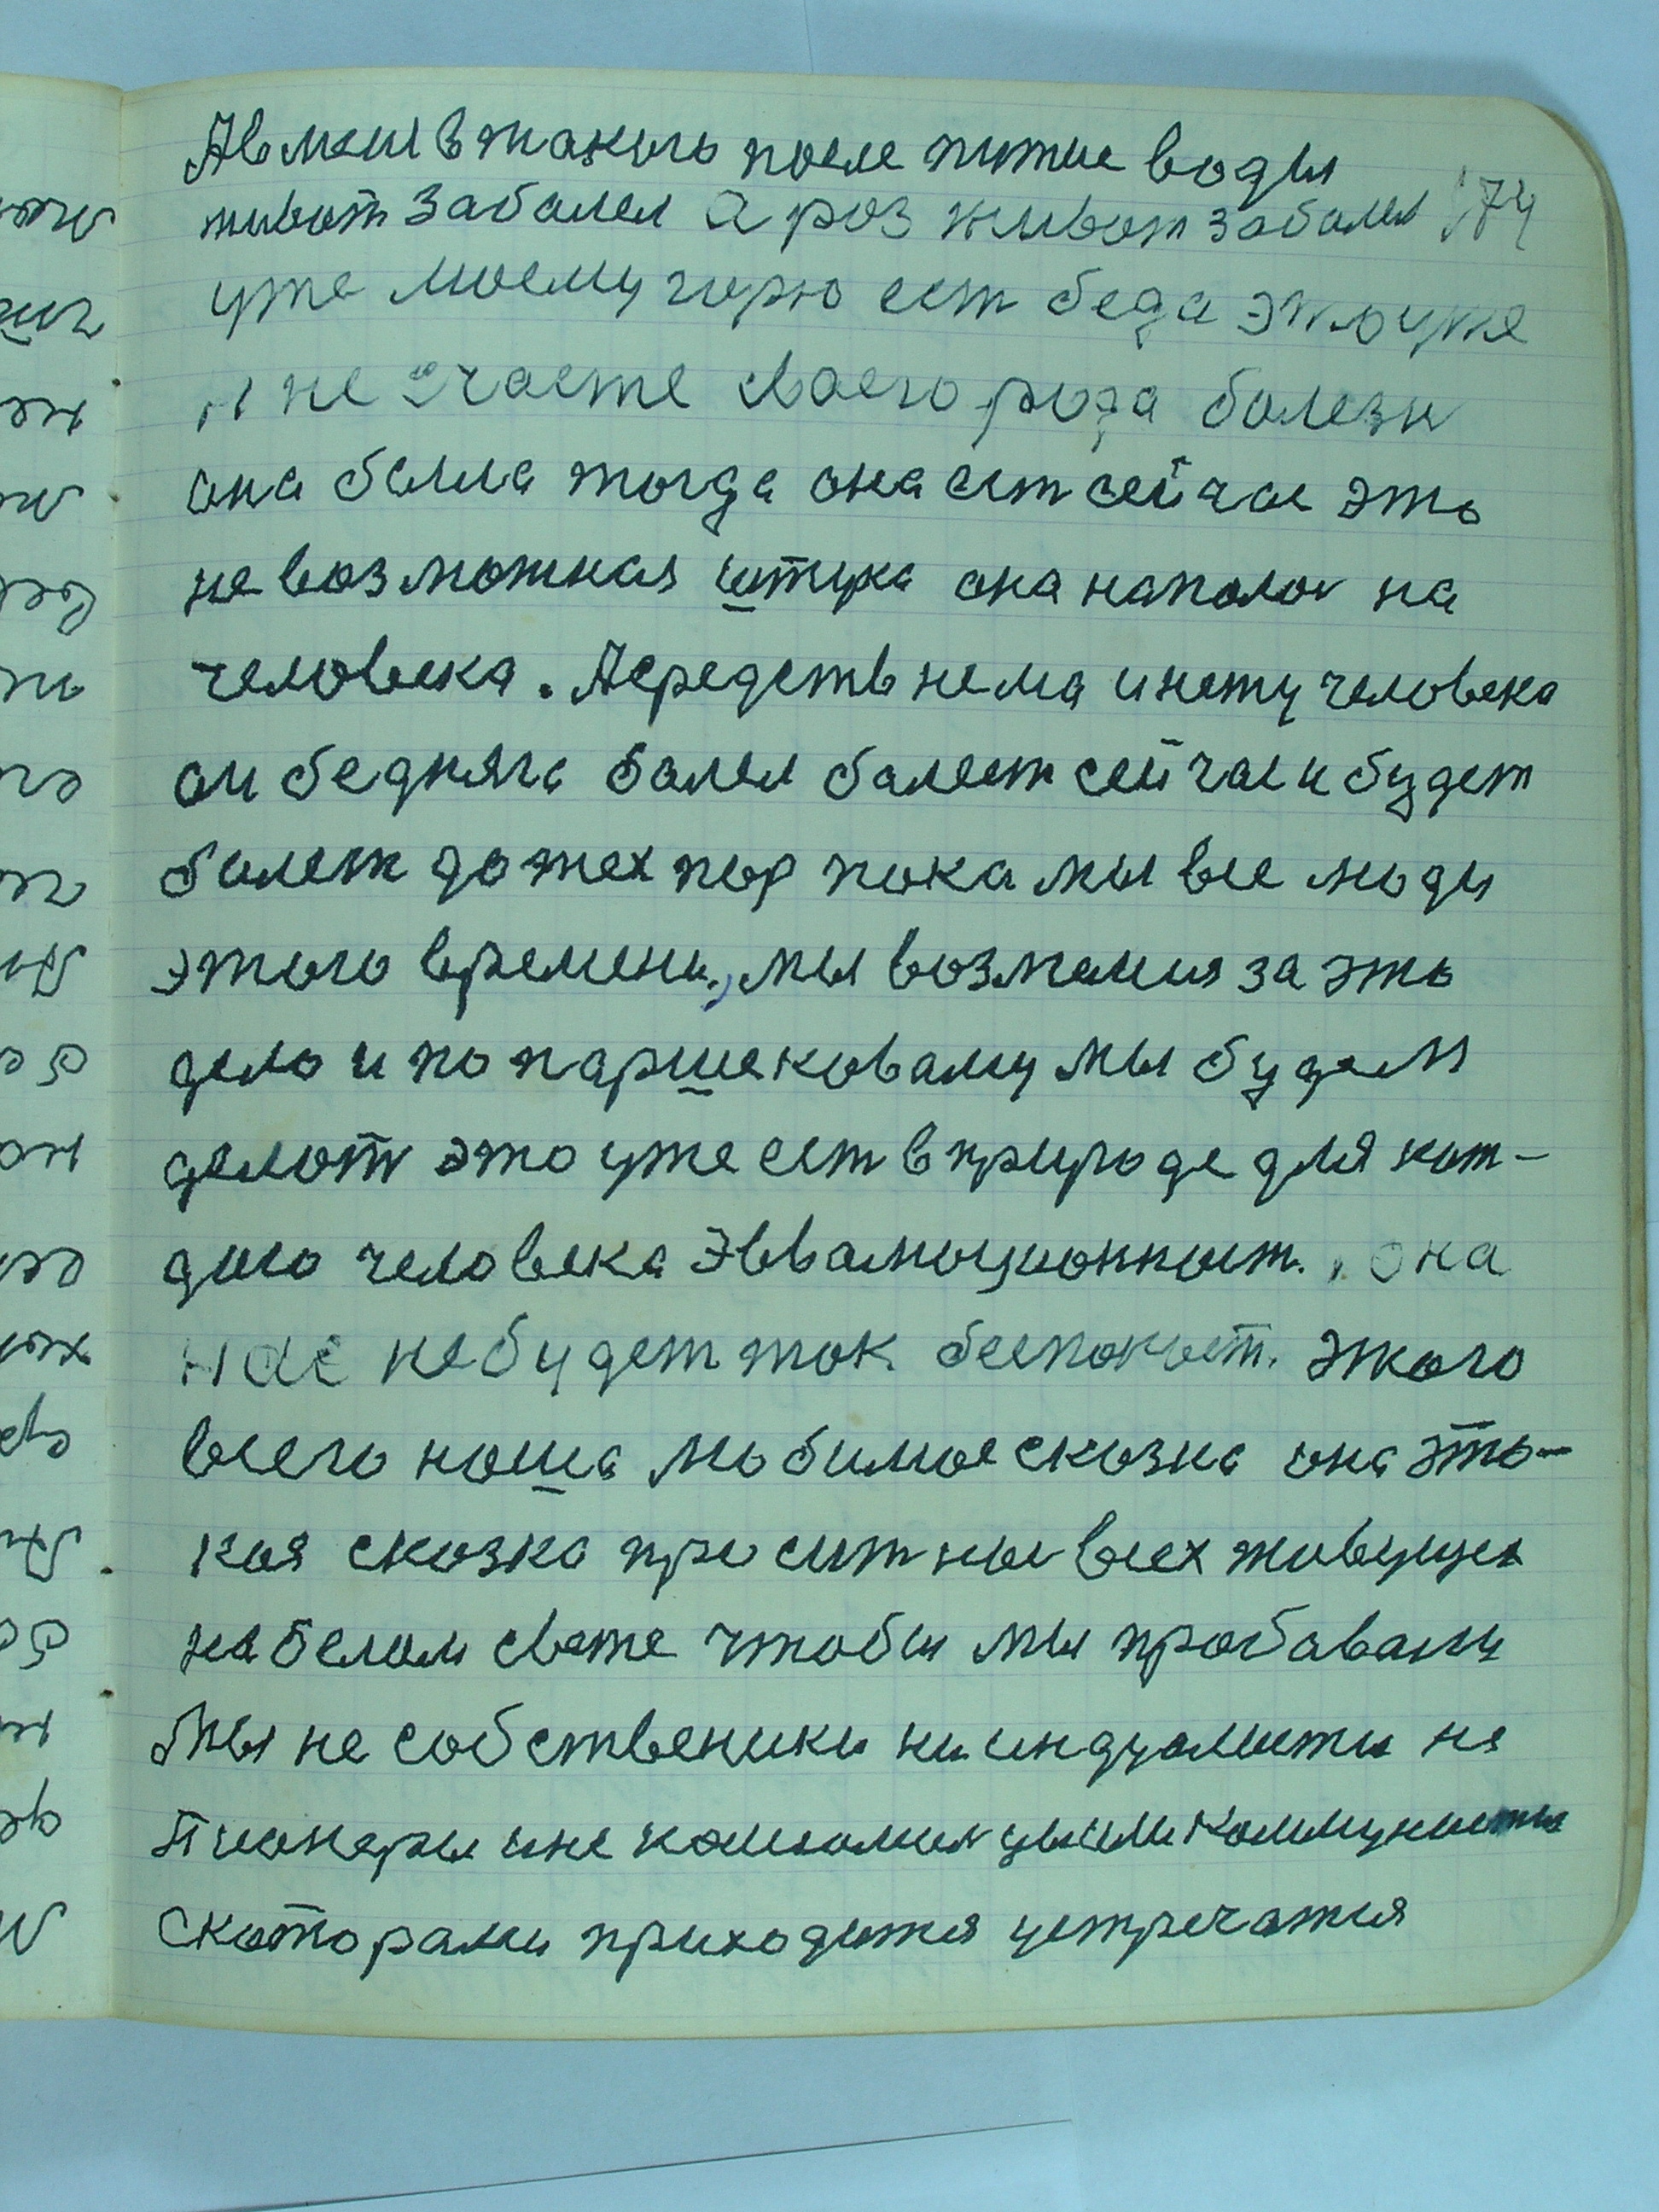 А вмени в такого после питие воды
живот заболел а роз живот заболел 174
уже моему горю ест беда это уже
и не счасте своего рода болезн
она была тогда она ест сейчас это
не возможная штука она напалой на
человека. А средств нема и нету человека
он бедняга болел болеет сейчас и будет
болет до тех пор пока мы все люди
этого времени, мы возмемся за это
дело и по паршековаму мы будем
делот это уже ест в природе для каж-
дого человека Эввалюционност., она
нас не будет так беспокоит. Этого
всего наша любимая сказка она это-
кая сказка просит ны всех живущих
на белом свете чтобы мы пробавали
Мы не собственики ни индуалисты не
Пионеры и не комсомол цы или Коммунисты
Скоторами приходится устречатся